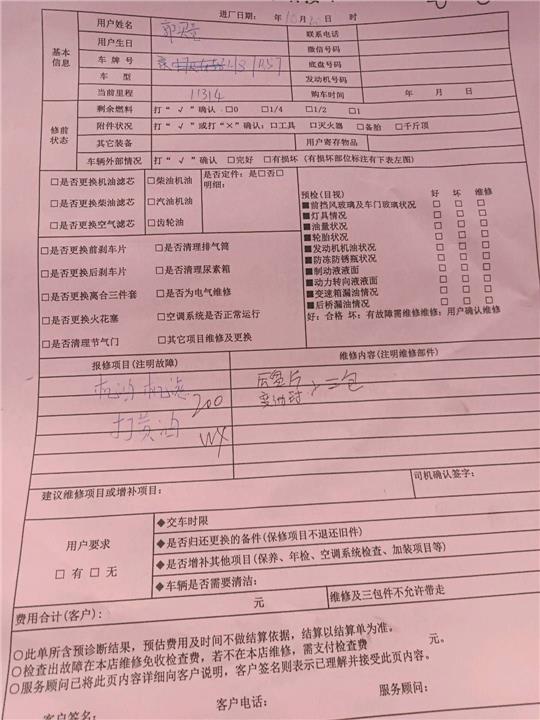 进厂日期: 年10月2 日 时
基本信息
用户姓名 联系电话
用户生日 微信号码
车牌号 底盘号码
车 型 发动机号码
当前里程 11314 购车时间 年 月 日
修前状态
剩余燃料 打“√”确认 □0 □1/4 □1/2 □1
附件状况 打“√”或打“×”确认:□工具 □灭火器 □备胎 □千斤顶
其它装备 用户寄存物品
车辆外部情况 打“√”确认 □完好 □有损坏 (有损坏部位标注有下表左图)
□是否更换机油滤芯 □柴油机油 是否定件: 是□否□
明细:
□是否更换柴油滤芯 □汽油机油
□是否更换空气滤芯 □齿轮油
□是否更换前刹车片 □是否清理排气筒
□是否更换后刹车片 □是否清理尿素箱
□是否更换离合三件套 □是否为电气维修
□是否更换火花塞 □空调系统是否正常运行
□是否清理节气门 □其它项目维修及更换
预检(目视) 好 坏 维修
■前挡风玻璃及车门玻璃状况 □ □ □
■灯具情况 □ □ □
■油量状况 □ □ □
■轮胎状况 □ □ □
■发动机机油状况 □ □ □
■防冻防锈瓶状况 □ □ □
■制动液液面 □ □ □
■动力转向液液面 □ □ □
■变速箱漏油情况 □ □ □
■后桥漏油情况 □ □ □
好: 合格 坏: 有故障需维修维修: 用户确认维修
报修项目(注明故障) 维修内容(注明维修部件)
机油 机滤 200
打黄油 wx
三包
建议维修项目或增补项目: 司机确认签字:
用户要求
□ 有 □ 无
◆交车时限
◆是否归还更换的备件(保修项目不退还旧件)
◆是否增补其他项目(保养、年检、空调系统检查、加装项目等)
◆车辆是否需要清洁:
费用合计(客户): 元 维修及三包件不允许带走
○此单所含预诊断结果,预估费用及时间不做结算依据,结算以结算单为准。
○检查出故障在本店维修免收检查费,若不在本店维修,需支付检查费 元。
○服务顾问已将此页内容详细向客户说明,客户签名则表示已理解并接受此页内容。
客户签名: 客户电话: 服务顾问: